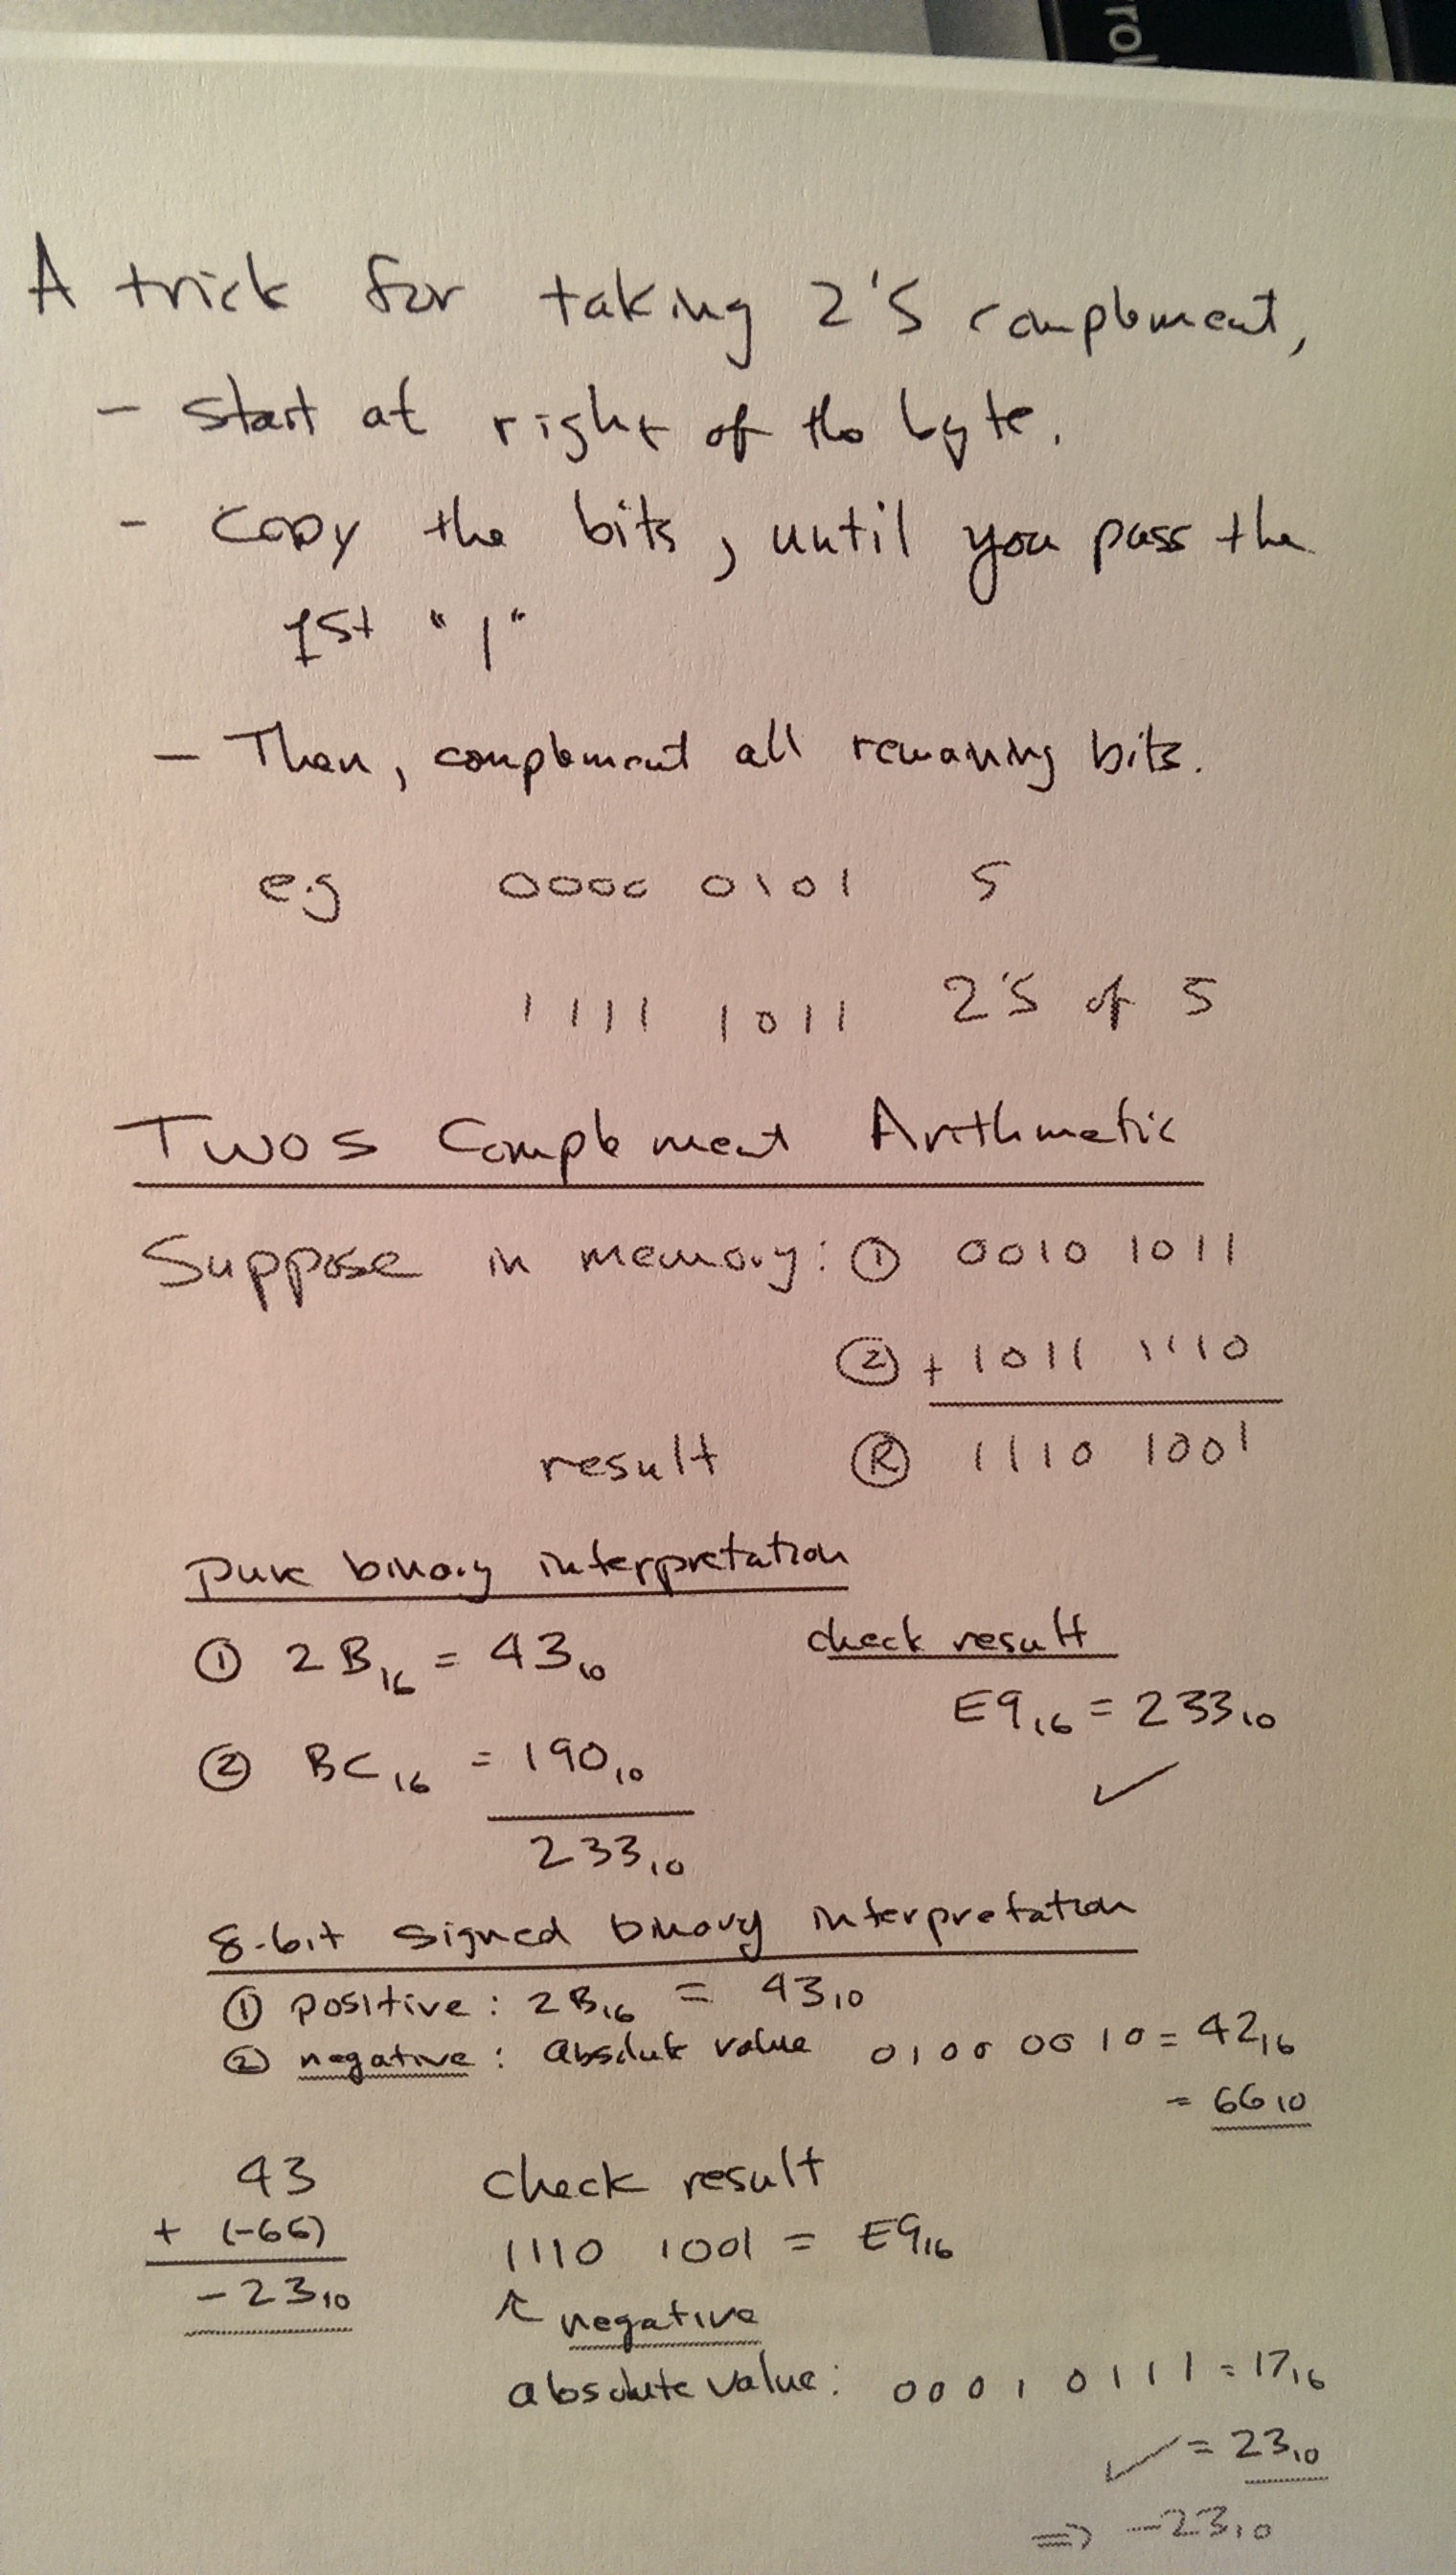 rol
A trick for taking 2's complement,
- Start at right of the byte.
- Copy the bits, until you pass the
1st "1"
- Then, complement all remaining bits.
e.g 0000 0101 5
1111 1011 2's of 5
Twos Complement Arithmetic
Suppose in memory: ① 0010 1011
② + 1011 1110
result Ⓡ 1110 1001
Pure binary interpretation
① 2B₁₆ = 43₁₀
check result
E9₁₆ = 233₁₀
② BC₁₆ = 190₁₀
✓
233₁₀
8-bit signed binary interpretation
① positive: 2B₁₆ = 43₁₀
② negative: absolute value 0100 0010 = 42₁₆
= 66₁₀
43
+ (-66)
-23₁₀
check result
1110 1001 = E9₁₆
↑ negative
absolute value: 0001 0111 = 17₁₆
✓ = 23₁₀
⇒ -23₁₀